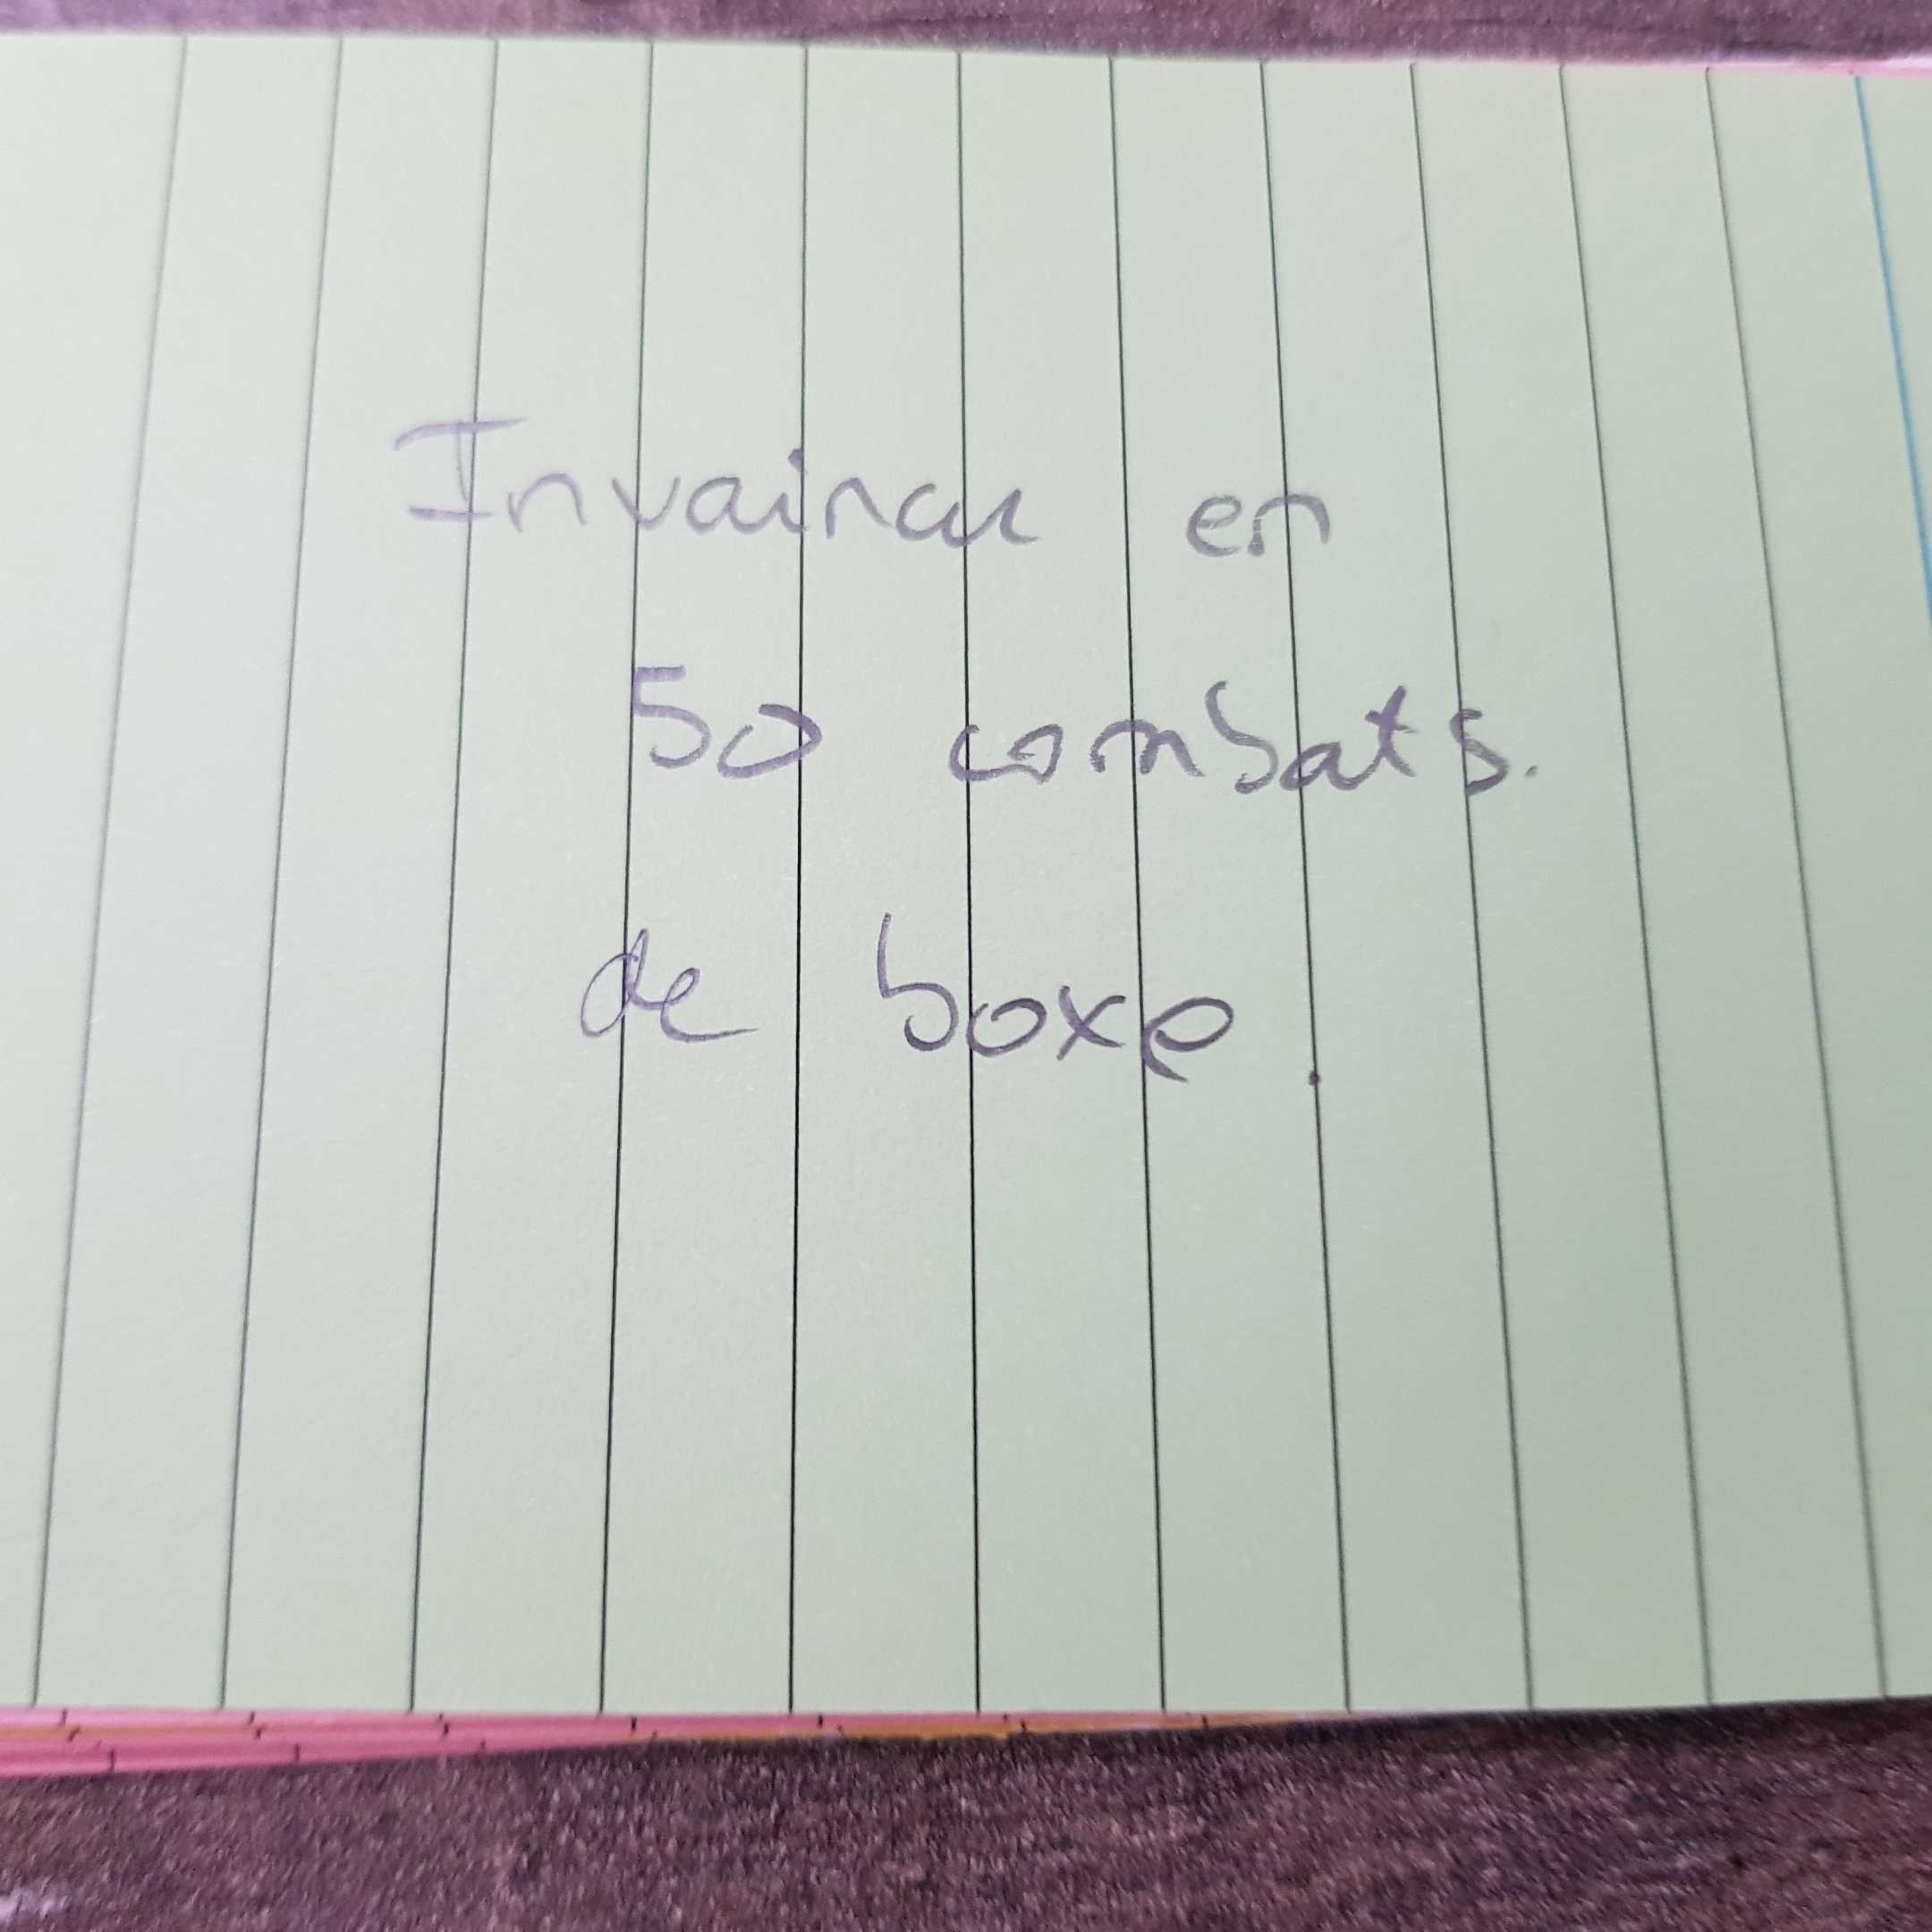 Invaincu en
50 combats.
de boxe.